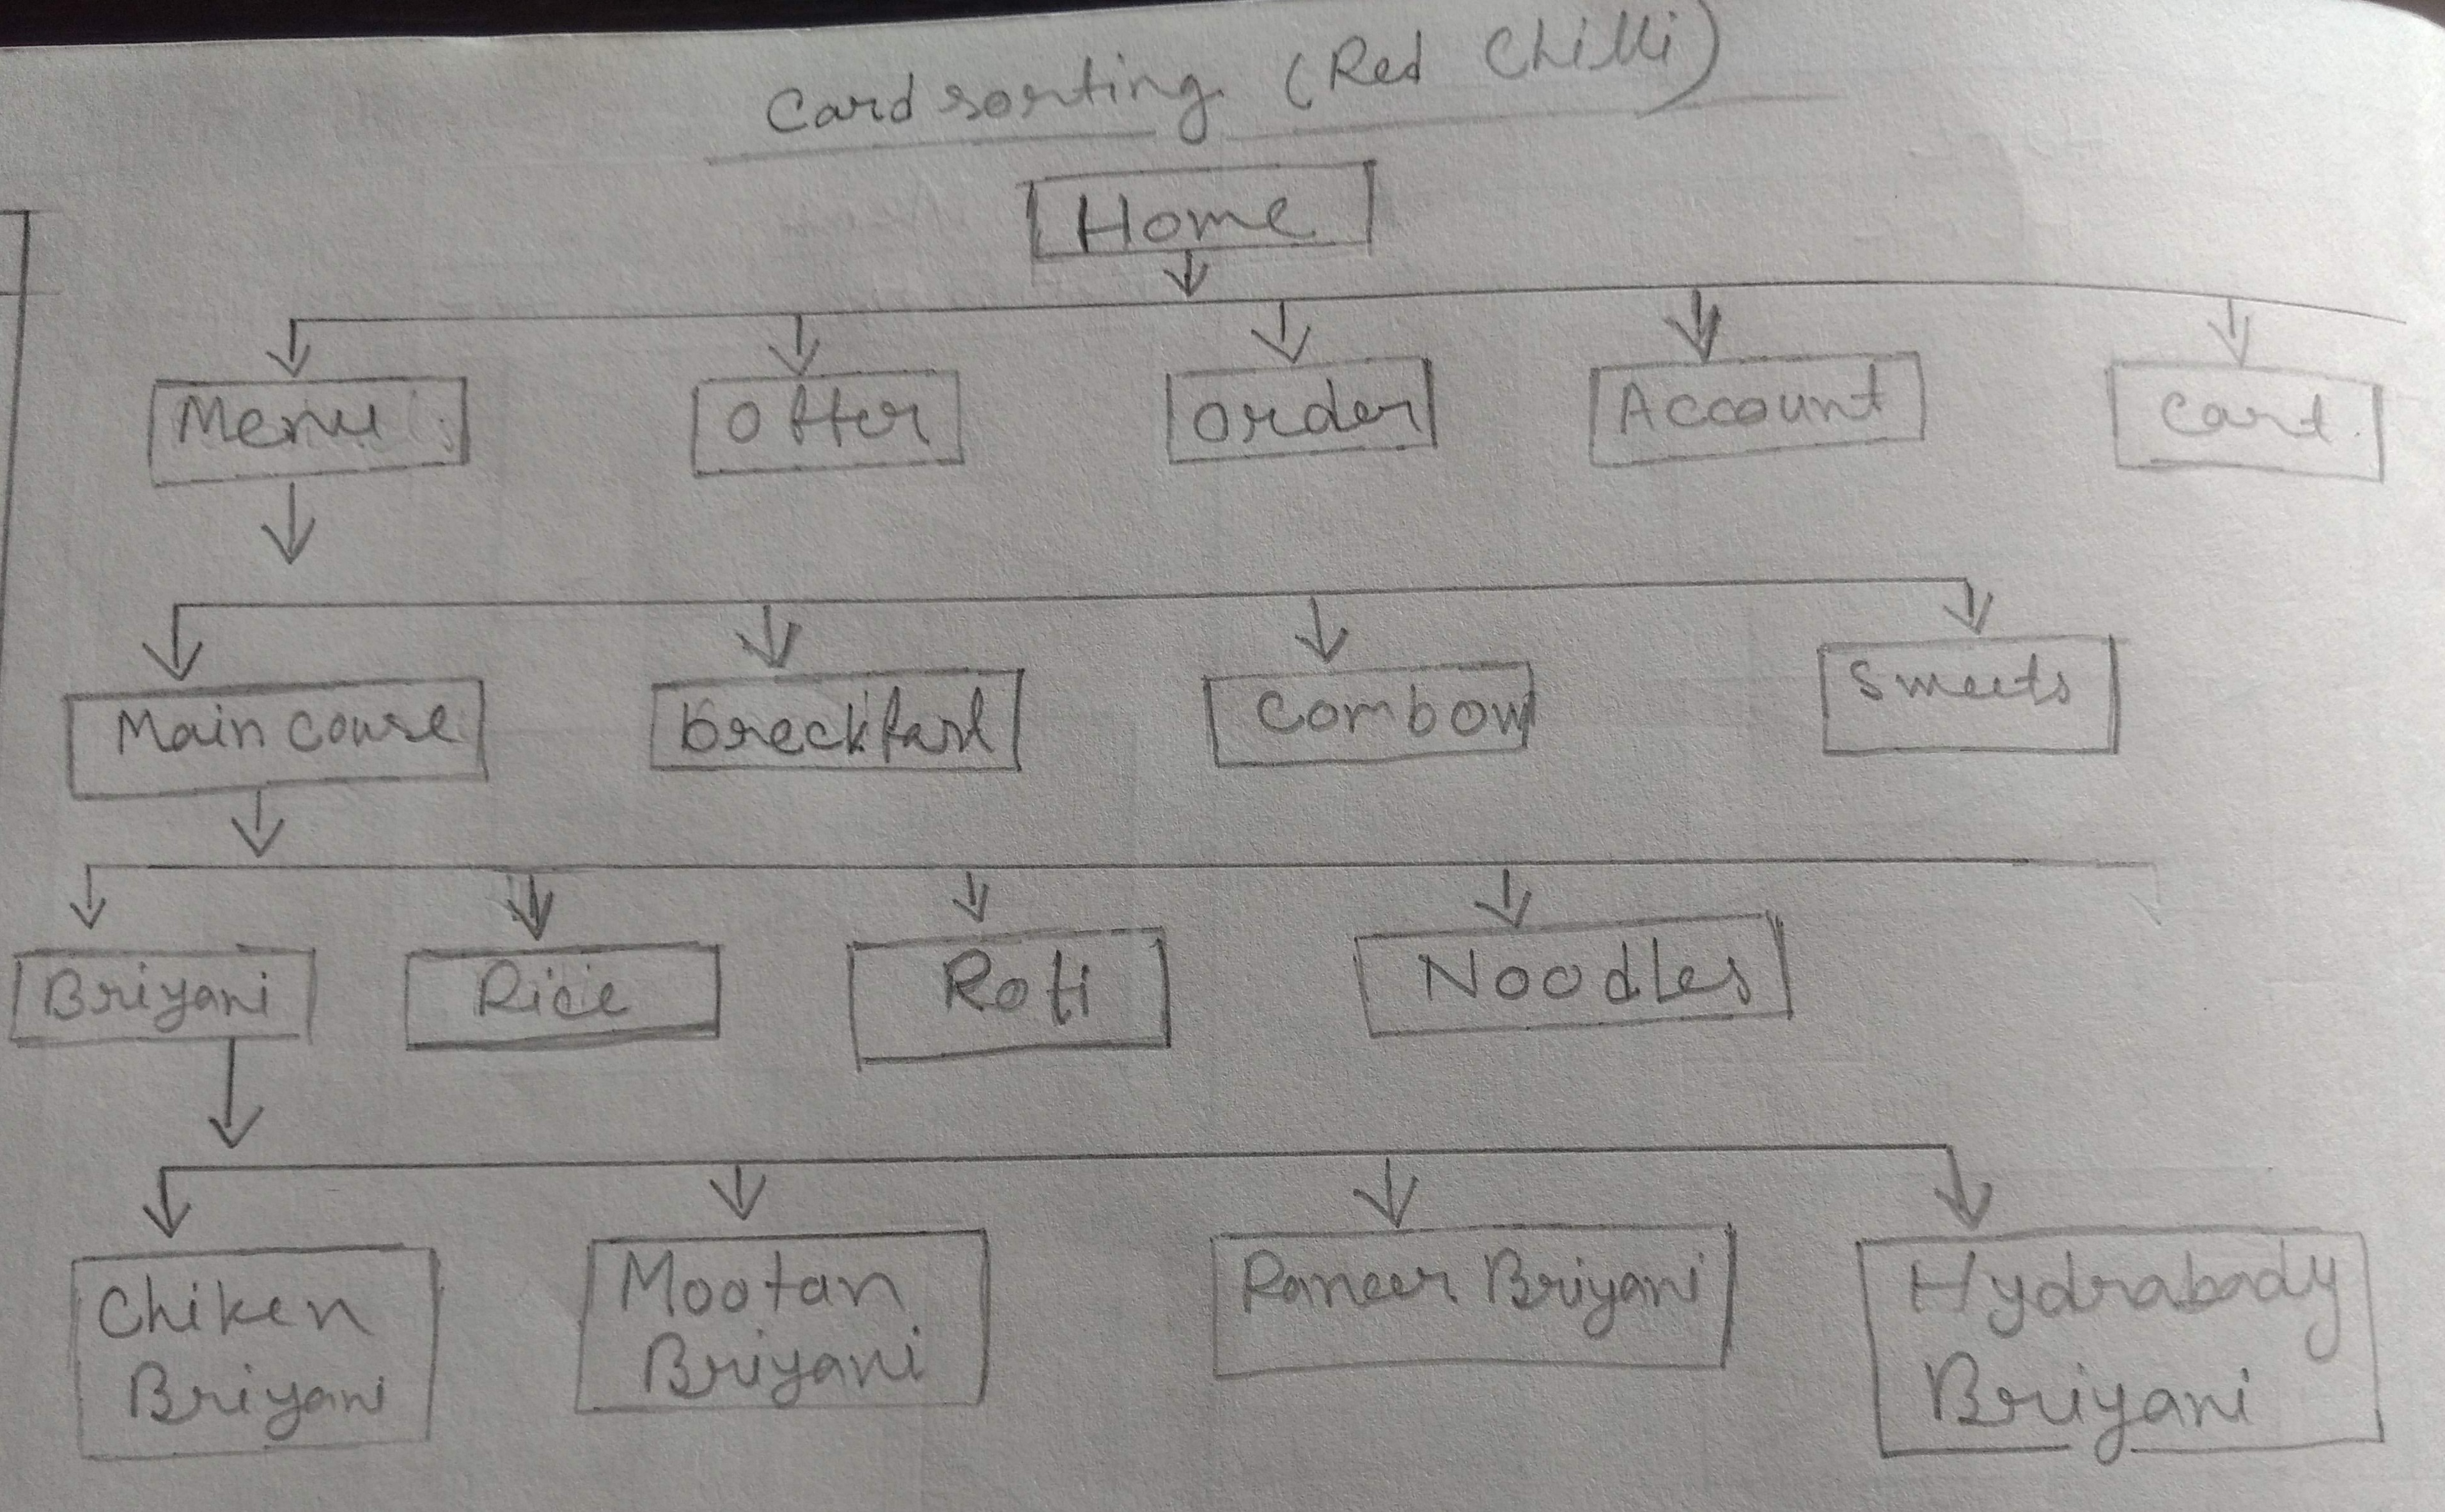 Card sorting (Red Chilli)
Home
Menu
Offer
order
Account
Cart
Main Course
breckfast
Combow
Sweets
Briyani
Rice
Roti
Noodles
Chiken
Briyani
Mootan
Briyani
Paneer Briyani
Hydrabady
Briyani